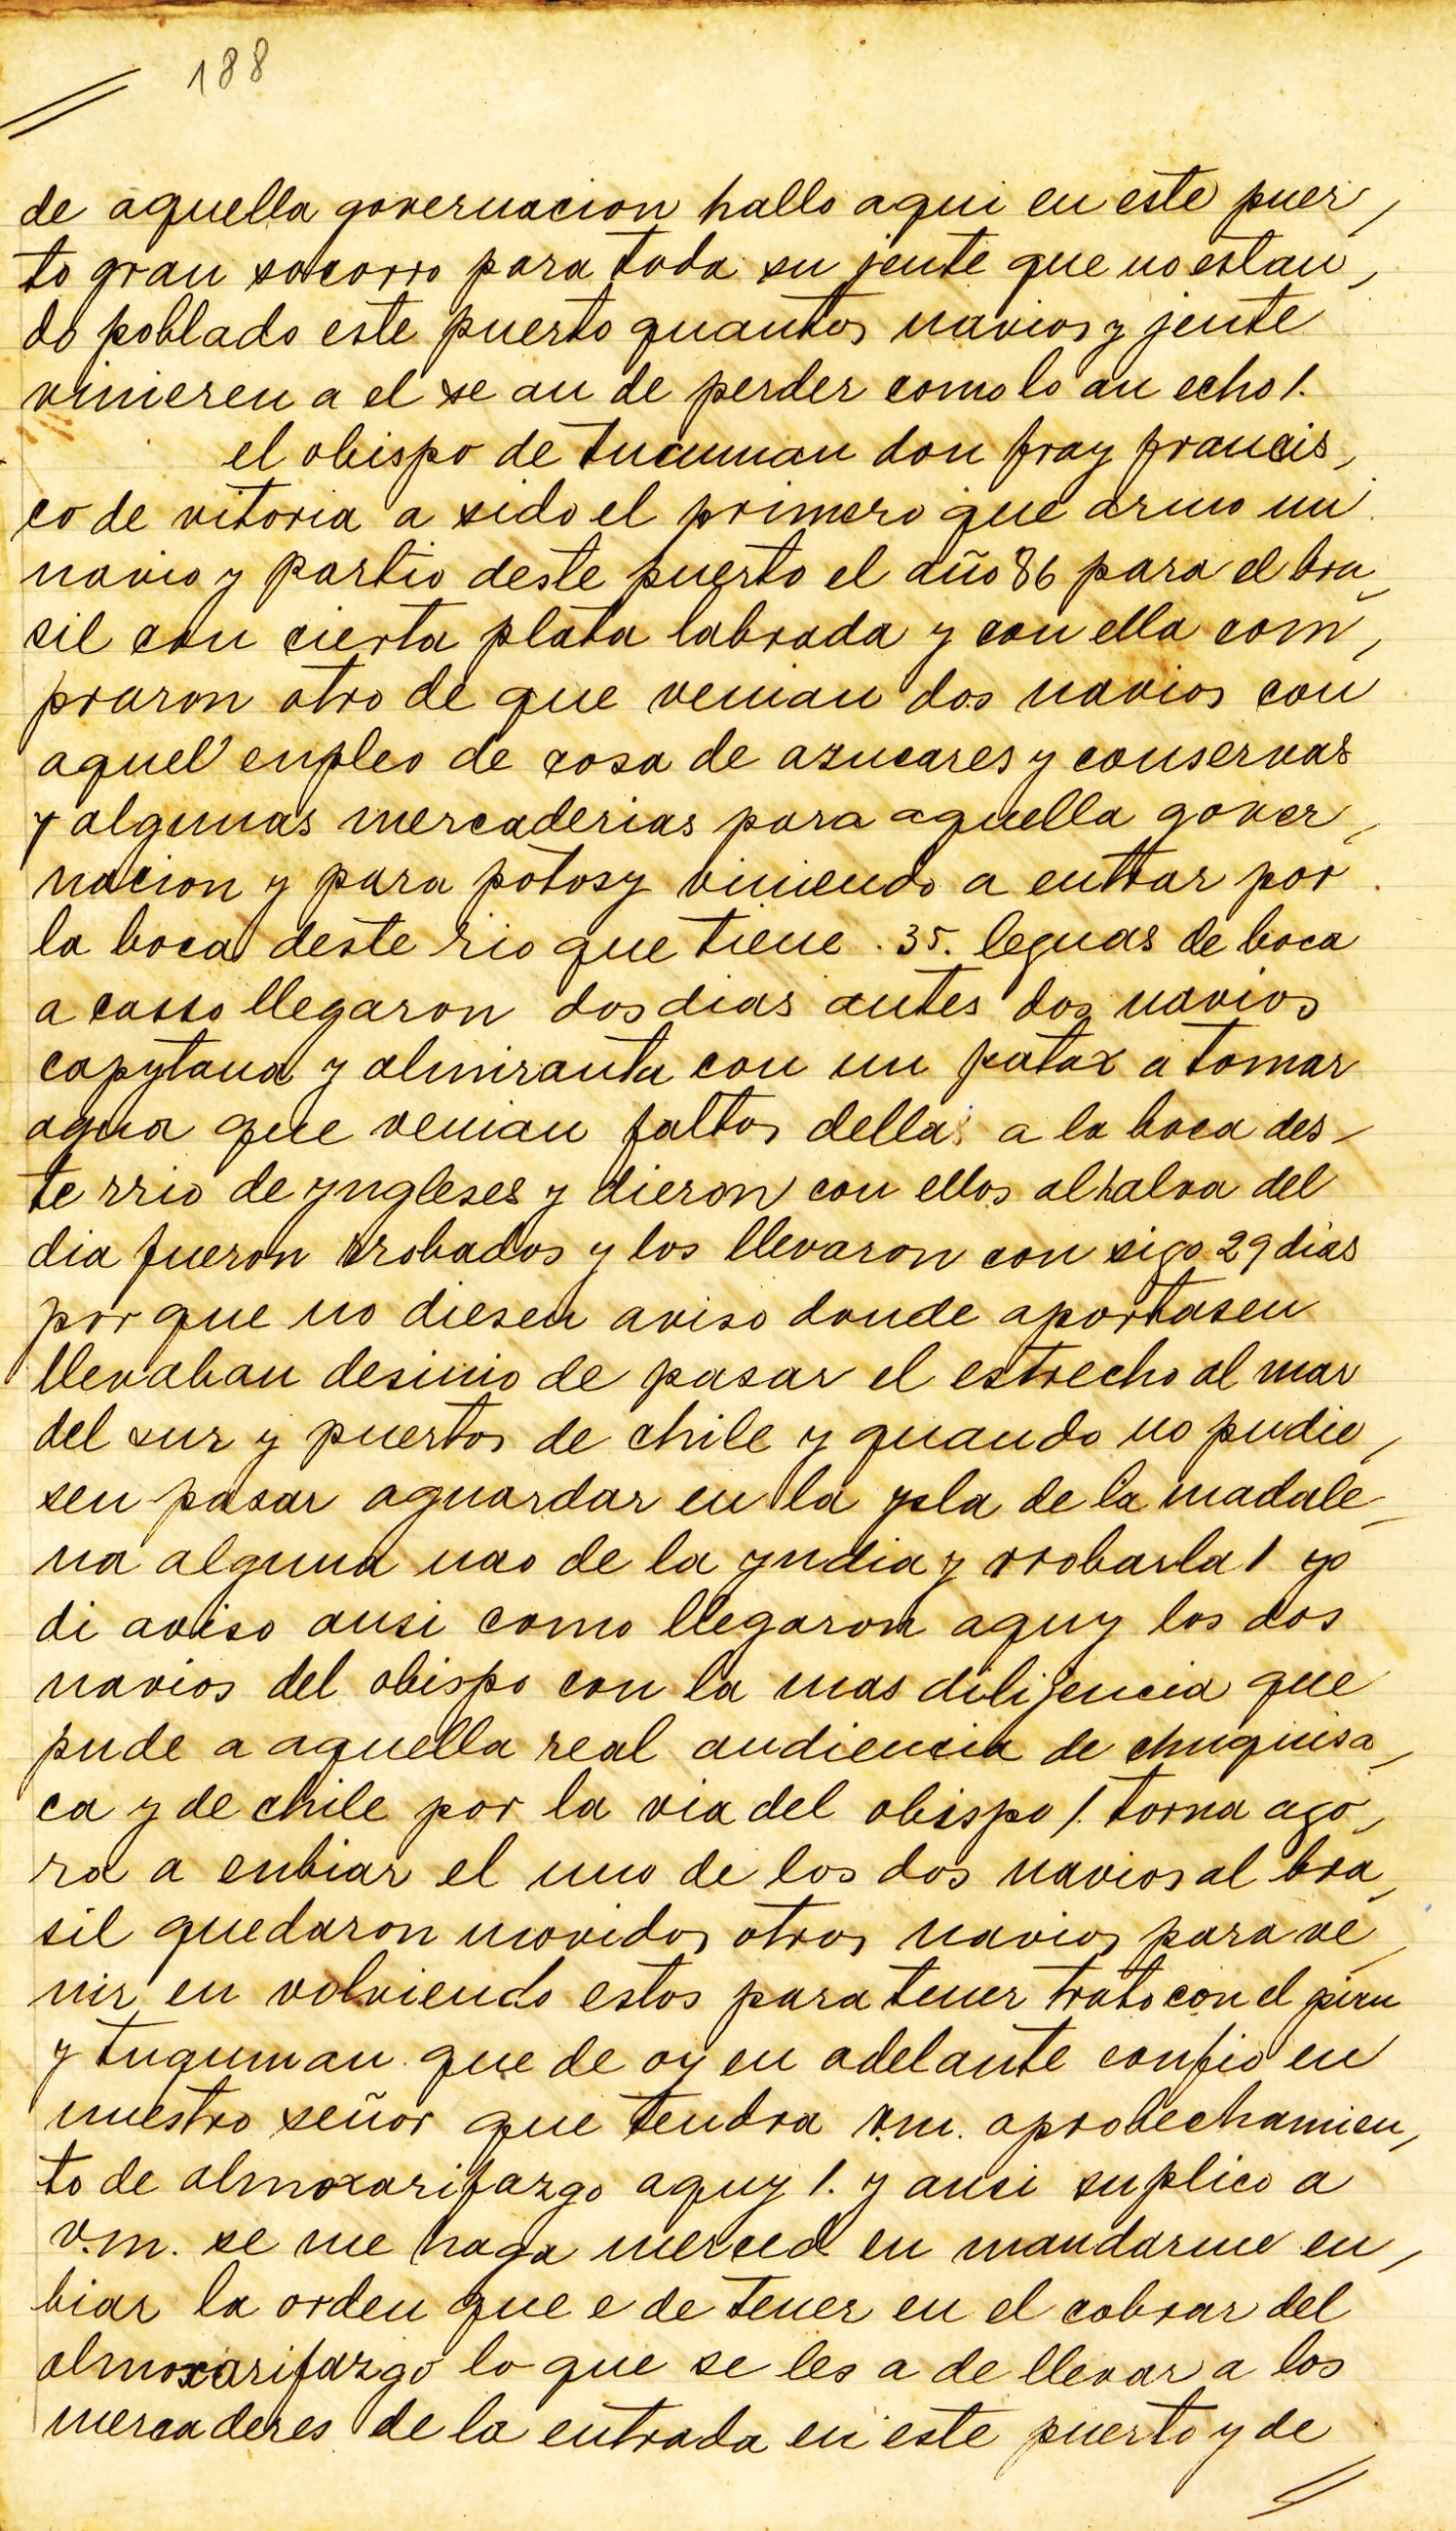 188
de aquella governacion hallo aqui en este puer,
to gran socorro para toda su jente que no estan,
do poblado este puerto quantos navios y jente
vinieren a el se an de perder como lo an echo /.
el obispo de tucuman don fray francis,
co de vitoria a sido el primero que armo un
navio y partio deste puerto el año 86 para el bra,
sil con cierta plata labrada y con ella com,
praron otro de que venian dos navios con
aquel enpleo de cosa de azucares y conservas
y algunas mercaderias para aquella gover,
nacion y para potosy viniendo a entrar por
la boca deste rio que tiene . 35. leguas de boca
a casso llegaron dos dias antes dos navios
capytana y almiranta con un patax a tomar
agua que venian faltos della a la boca des-
te rrio de yngleses y dieron con ellos al alva del
dia fueron rrobados y los llevaron con sigo 29 dias
por que no diesen aviso donde aportasen
llevaban desinio de pasar el estrecho al mar
del sur y puertos de chile y quando no pudie,
sen pasar aguardar en la ysla de la madale,
na alguna nao de la yndia y rrobarla / yo
di aviso ansi como llegaron aquy los dos
navios del obispo con la mas dilijencia que
pude a aquella real audiencia de chuquisa,
ca y de chile por la via del obispo /. torna ago,
ra a enbiar el uno de los dos navios al bra,
sil quedaron movidos otros navios para ve,
nir en volviendo estos para tener trato con el piru
y tuquman que de oy en adelante confio en
nuestro señor que tendra v.m. aprobechamien,
to de almoxarifazgo aquy /. y ansi suplico a
v.m. se me haga merced en mandarme en,
biar la orden que e de tener en el cobrar del
almoxarifazgo lo que se les a de llevar a los
mercaderes de la entrada en este puerto y de